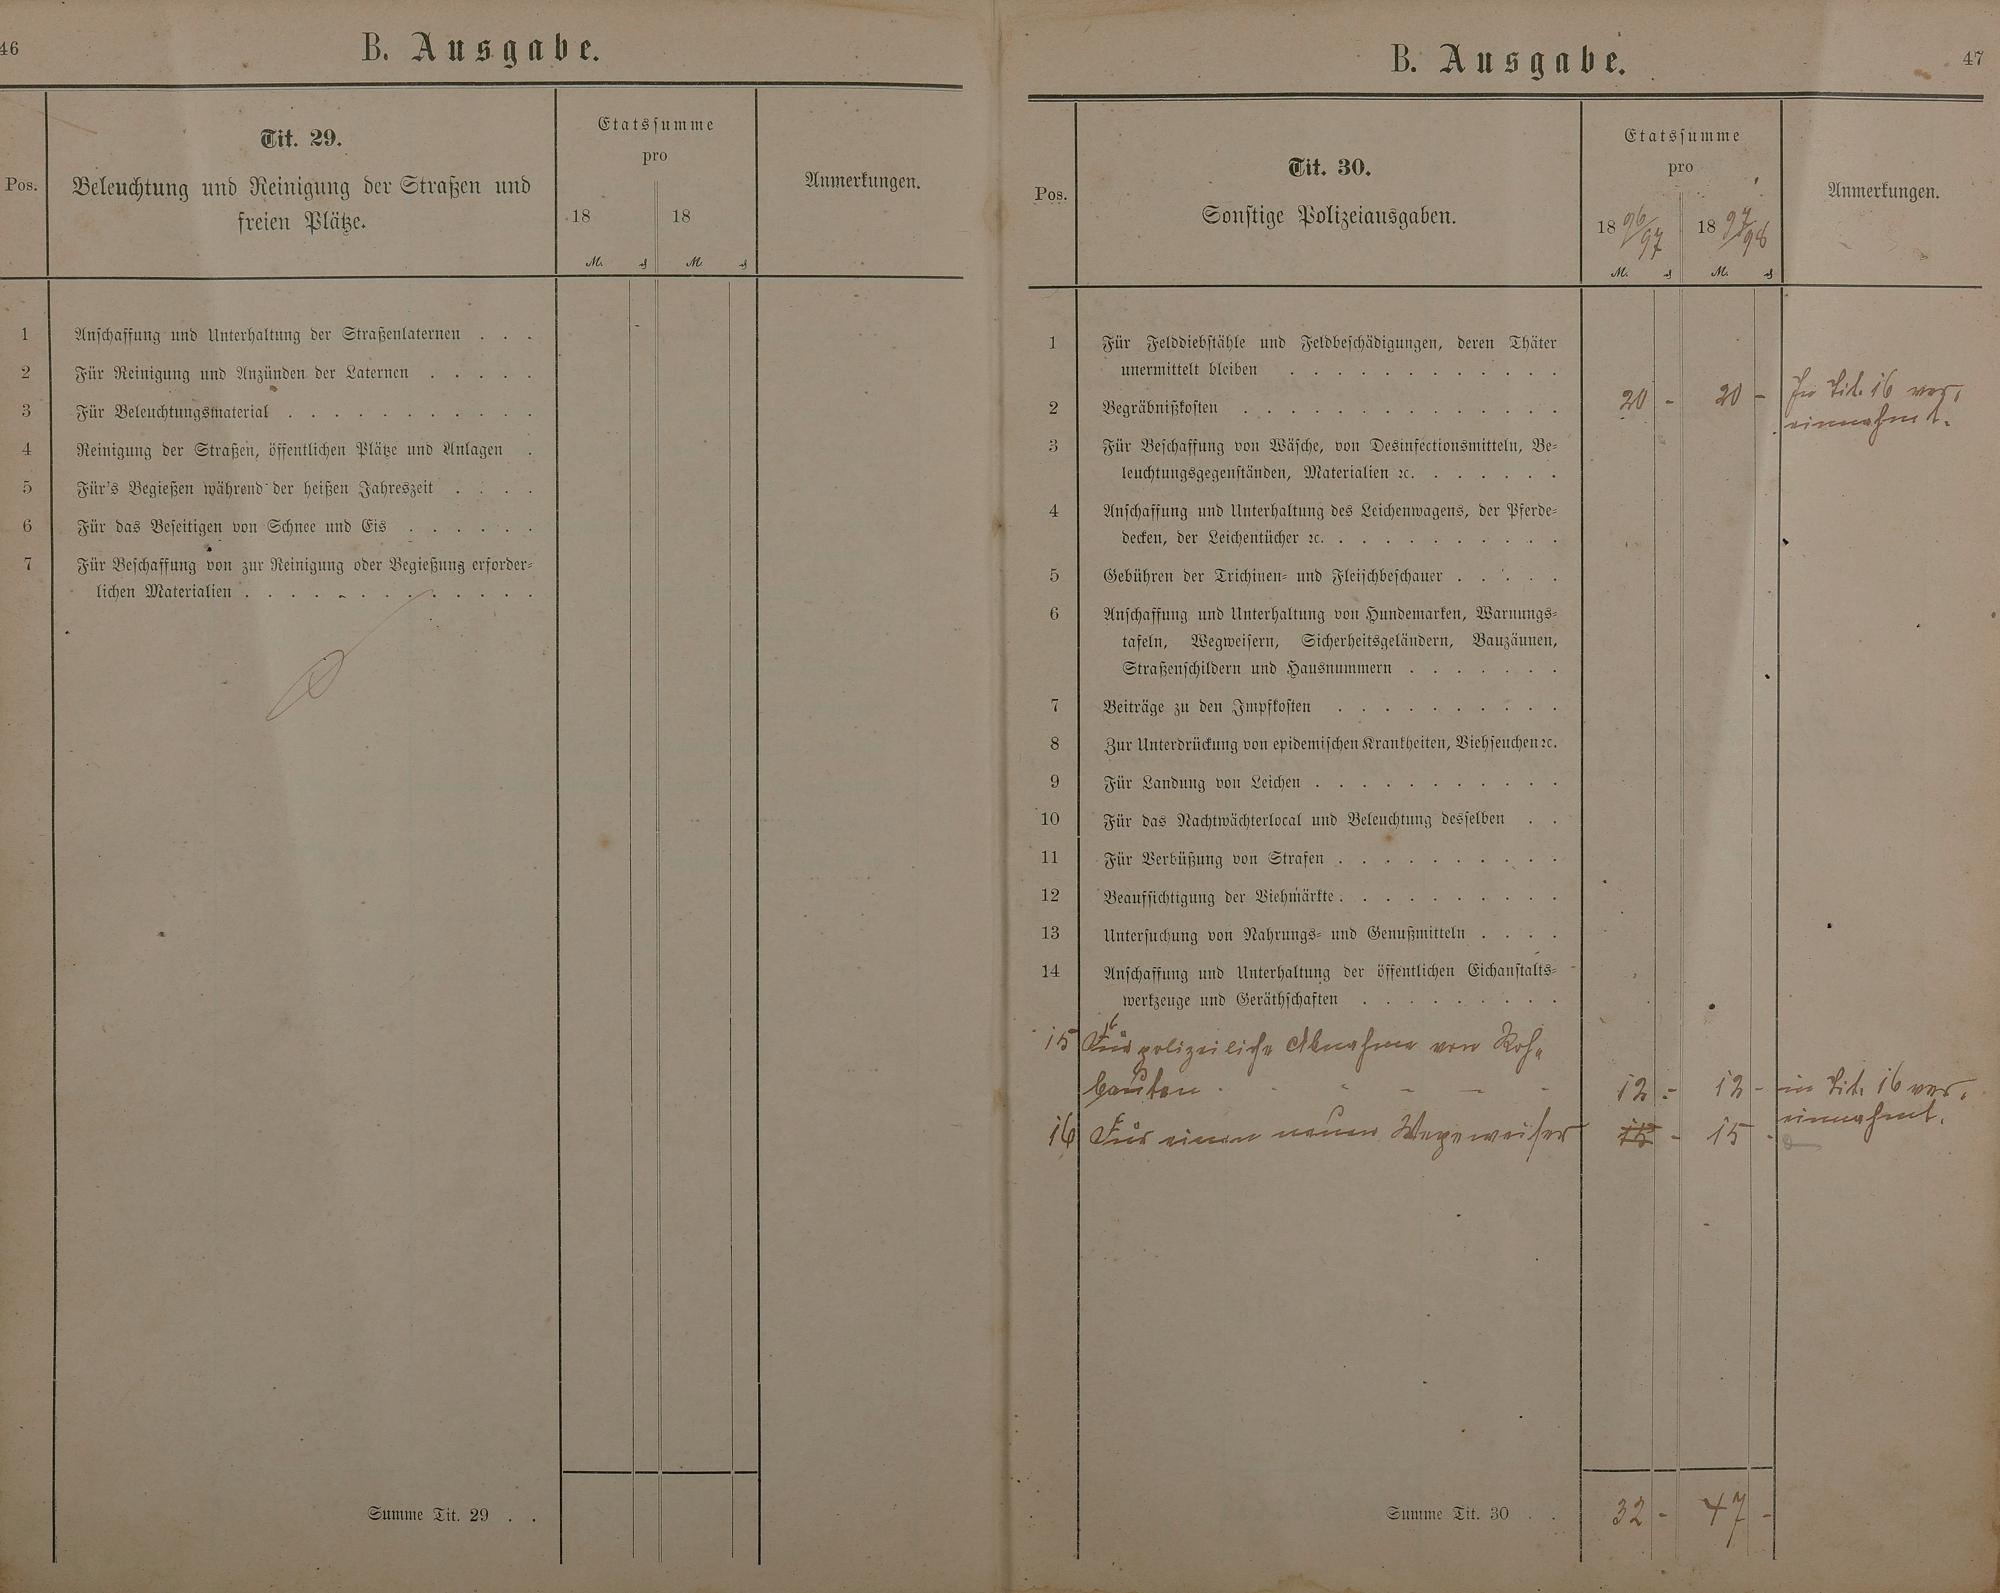 46
B. Ausgabe.
Pos.
Tit. 29.
Beleuchtung und Reinigung der Straßen und
freien Plätze.
Etatssumme
pro
18 18
M. ₰ M. ₰
Anmerkungen.
1 Anschaffung und Unterhaltung der Straßenlaternen . . .
2 Für Reinigung und Anzünden der Laternen . . . . .
3 Für Beleuchtungsmaterial . . . . . . . . . . .
4 Reinigung der Straßen, öffentlichen Plätze und Anlagen .
5 Für's Begießen während der heißen Jahreszeit . . . .
6 Für das Beseitigen von Schnee und Eis . . . . . .
7 Für Beschaffung von zur Reinigung oder Begießung erforder-
lichen Materialien . . . . . . . . . . . . .
Summe Tit. 29 . .
47
B. Ausgabe.
Pos.
Tit. 30.
Sonstige Polizeiausgaben.
Etatssumme
pro
1896/97 1897/98
M. ₰ M. ₰
Anmerkungen.
1 Für Felddiebstähle und Feldbeschädigungen, deren Thäter
unermittelt bleiben . . . . . . . . . . . .
2 Begräbnißkosten . . . . . . . . . . . . . . 20 - 20 - In Tit. 16 ver-
einnahmt.
3 Für Beschaffung von Wäsche, von Desinfectionsmitteln, Be-
leuchtungsgegenständen, Materialien ꝛc. . . . . . .
4 Anschaffung und Unterhaltung des Leichenwagens, der Pferde-
decken, der Leichentücher ꝛc. . . . . . . . . . .
5 Gebühren der Trichinen- und Fleischbeschauer . . . . .
6 Anschaffung und Unterhaltung von Hundemarken, Warnungs-
tafeln, Wegweisern, Sicherheitsgeländern, Bauzäunen,
Straßenschildern und Hausnummern . . . . . . .
7 Beiträge zu den Impfkosten . . . . . . . . . .
8 Zur Unterdrückung von epidemischen Krankheiten, Viehseuchen ꝛc.
9 Für Landung von Leichen . . . . . . . . . . .
10 Für das Nachtwächterlocal und Beleuchtung desselben . .
11 Für Verbüßung von Strafen . . . . . . . . . .
12 Beaufsichtigung der Viehmärkte . . . . . . . . . .
13 Untersuchung von Nahrungs- und Genußmitteln . . . .
14 Anschaffung und Unterhaltung der öffentlichen Eichanstalts-
werkzeuge und Geräthschaften . . . . . . . . .
15 Für polizeiliche Abnahme von Roh-
bauten . - - - - - 12 - 12 - in Tit. 16 ver-
einnahmt.
16 Für einen neuen Wegeweiser 15 - 15 -
Summe Tit. 30 . . 32 - 47 -